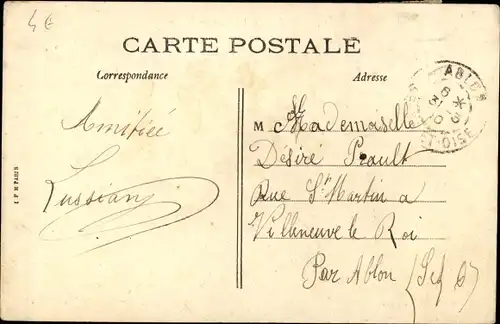 4 €
CARTE POSTALE
Correspondance
Adresse
Amitiée
Lussian
M Mademoiselle
Désiré Prault
Rue St Martin a
Villeneuve le Roi
Par Ablon (Set O)
ABLON
OISE